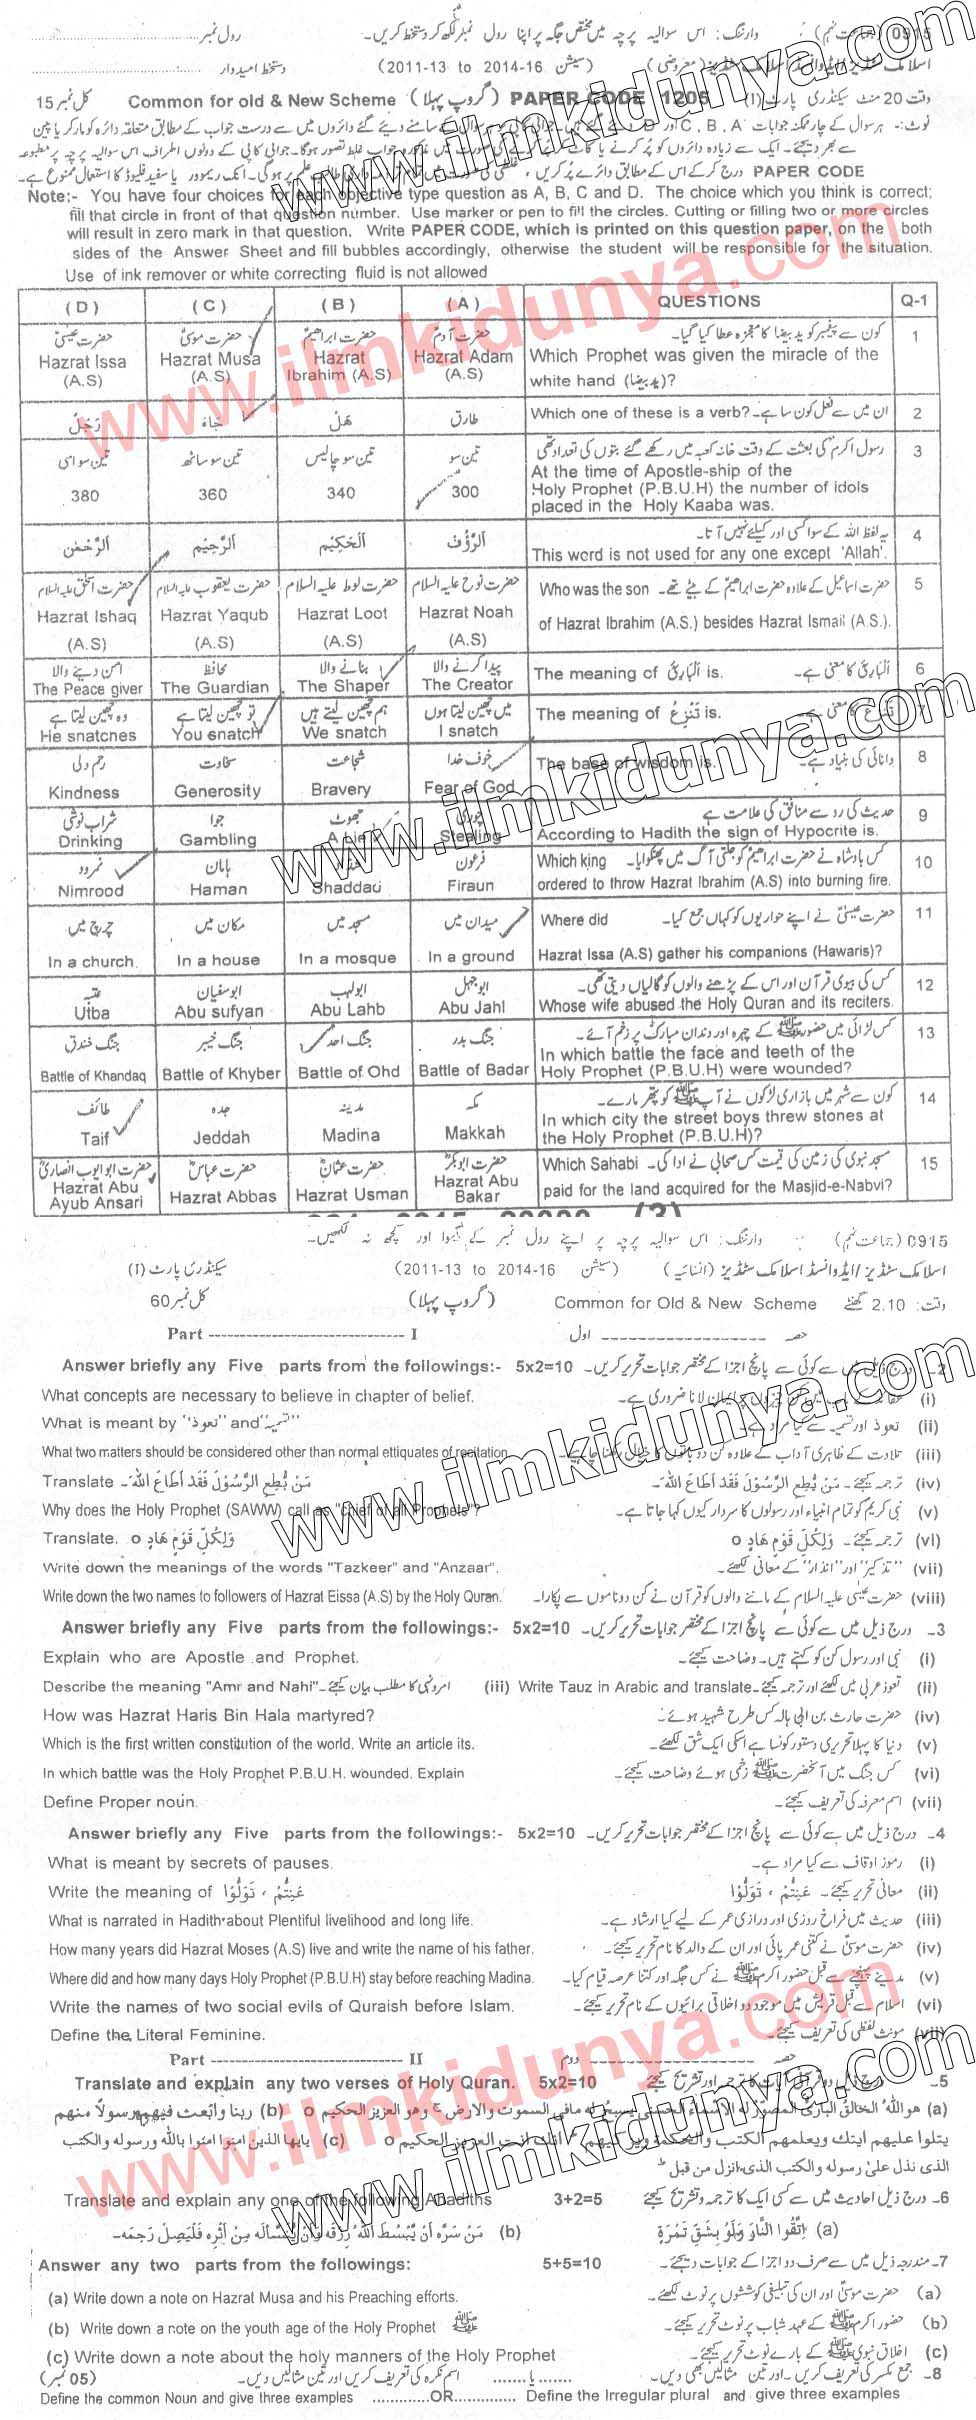 0915 (جماعت نہم) وارننگ: اس سوالیہ پرچہ میں مختص جگہ پر اپنا رول نمبر لکھ کر دستخط کریں۔ رول نمبر
اسلامک سٹڈیز/ایڈوانسڈ اسلامک سٹڈیز (معروضی) (سیشن 2011-13 to 2014-16) دستخط امیدوار
وقت 20 منٹ سیکنڈری پارٹ (I) PAPER CODE 1205 (گروپ پہلا) Common for old & New Scheme کل نمبر 15
PAPER CODE درج کر کے اس کے مطابق دائرے پُر کریں،
Note:- You have four choices for each objective type question as A, B, C and D. The choice which you think is correct;
fill that circle in front of that question number. Use marker or pen to fill the circles. Cutting or filling two or more circles
will result in zero mark in that question. Write PAPER CODE, which is printed on this question paper, on the both
sides of the Answer Sheet and fill bubbles accordingly, otherwise the student will be responsible for the situation.
Use of ink remover or white correcting fluid is not allowed
(D) (C) (B) (A) QUESTIONS Q-1
حضرت عیسیٰؑ حضرت موسیٰؑ حضرت ابراہیمؑ حضرت آدمؑ کون سے پیغمبر کو یدِ بیضا کا معجزہ عطا کیا گیا۔ 1
Hazrat Issa (A.S) Hazrat Musa (A.S) Hazrat Ibrahim (A.S) Hazrat Adam (A.S) Which Prophet was given the miracle of the
white hand (یدِ بیضا)?
رَجُلٌ جَاءَ هَلْ طارق Which one of these is a verb? ان میں سے فعل کون سا ہے۔ 2
تین سو اسی تین سو ساٹھ تین سو چالیس تین سو رسول اکرمؐ کی بعثت کے وقت خانہ کعبہ میں رکھے گئے بتوں کی تعداد تھی 3
380 360 340 300 At the time of Apostle-ship of the
Holy Prophet (P.B.U.H) the number of idols
placed in the Holy Kaaba was.
اَلرَّحْمٰن اَلرَّحِیْم اَلْحَکِیْم اَلرَّؤُفُ یہ لفظ اللہ کے سوا کسی اور کیلئے نہیں آتا۔ 4
This word is not used for any one except 'Allah'.
حضرت اسحٰق علیہ السلام حضرت یعقوب علیہ السلام حضرت لوط علیہ السلام حضرت نوح علیہ السلام Who was the son حضرت اسماعیلؑ کے علاوہ حضرت ابراہیمؑ کے بیٹے تھے۔ 5
Hazrat Ishaq (A.S) Hazrat Yaqub (A.S) Hazrat Loot (A.S) Hazrat Noah (A.S) of Hazrat Ibrahim (A.S.) besides Hazrat Ismail (A.S.).
امن دینے والا محافظ بنانے والا پیدا کرنے والا The meaning of اَلْبَارِئُ is. اَلْبَارِئُ کا معنی ہے۔ 6
The Peace giver The Guardian The Shaper The Creator
وہ چھین لیتا ہے تو چھین لیتا ہے ہم چھین لیتے ہیں میں چھین لیتا ہوں The meaning of تَنْزِعُ is. تَنْزِعُ کا معنی ہے۔ 7
He snatches You snatch We snatch I snatch
رحم دلی سخاوت شجاعت خوف خدا The base of wisdom is. دانائی کی بنیاد ہے۔ 8
Kindness Generosity Bravery Fear of God
شراب نوشی جوا جھوٹ چوری حدیث کی رو سے منافق کی علامت ہے 9
Drinking Gambling A Lie Stealing According to Hadith the sign of Hypocrite is.
نمرود ہامان شداد فرعون Which king کس بادشاہ نے حضرت ابراہیمؑ کو جلتی آگ میں پھینکوایا۔ 10
Nimrood Haman Shaddad Firaun ordered to throw Hazrat Ibrahim (A.S) into burning fire.
چرچ میں مکان میں مسجد میں میدان میں Where did حضرت عیسیٰؑ نے اپنے حواریوں کو کہاں جمع کیا۔ 11
In a church. In a house In a mosque In a ground Hazrat Issa (A.S) gather his companions (Hawaris)?
عتبہ ابوسفیان ابولہب ابوجہل کس کی بیوی قرآن اور اس کے پڑھنے والوں کو گالیاں دیتی تھی۔ 12
Utba Abu sufyan Abu Lahb Abu Jahl Whose wife abused the Holy Quran and its reciters.
جنگ خندق جنگ خیبر جنگ احد جنگ بدر کس لڑائی میں حضور ﷺ کے چہرہ اور دندان مبارک پر زخم آئے۔ 13
Battle of Khandaq Battle of Khyber Battle of Ohd Battle of Badar In which battle the face and teeth of the
Holy Prophet (P.B.U.H) were wounded?
طائف جدہ مدینہ مکہ کون سے شہر میں بازاری لڑکوں نے آپ ﷺ کو پتھر مارے۔ 14
Taif Jeddah Madina Makkah In which city the street boys threw stones at
the Holy Prophet (P.B.U.H)?
حضرت ابو ایوب انصاریؓ حضرت عباسؓ حضرت عثمانؓ حضرت ابوبکرؓ Which Sahabi مسجد نبوی کی زمین کی قیمت کس صحابی نے ادا کی۔ 15
Hazrat Abu Ayub Ansari Hazrat Abbas Hazrat Usman Hazrat Abu Bakar paid for the land acquired for the Masjid-e-Nabvi?
0915 (جماعت نہم) وارننگ: اس سوالیہ پرچہ پر اپنے رول نمبر کے سوا اور کچھ نہ لکھیں۔
اسلامک سٹڈیز/ایڈوانسڈ اسلامک سٹڈیز (انشائیہ) (سیشن 2011-13 to 2014-16) سیکنڈری پارٹ (I)
وقت: 2.10 گھنٹے Common for Old & New Scheme (گروپ پہلا) کل نمبر 60
Part I حصہ اول
Answer briefly any Five parts from the followings:- 5x2=10 درج ذیل میں سے کوئی سے پانچ اجزا کے مختصر جوابات تحریر کریں۔ 2
What concepts are necessary to believe in chapter of belief. (i)
What is meant by "تعوذ" and "تسمیہ" تعوذ اور تسمیہ سے کیا مراد ہے۔ (ii)
What two matters should be considered other than normal ettiquates of recitation. تلاوت کے ظاہری آداب کے علاوہ کن دو باتوں کا خیال رکھنا چاہیے۔ (iii)
Translate مَنْ یُّطِعِ الرَّسُوْلَ فَقَدْ اَطَاعَ اللّٰہَ۔ ترجمہ کیجئے۔ مَنْ یُّطِعِ الرَّسُوْلَ فَقَدْ اَطَاعَ اللّٰہَ۔ (iv)
Why does the Holy Prophet (SAWW) call as "chief of all Prophets"? نبی کریمؐ کو تمام انبیاء اور رسولوں کا سردار کیوں کہا جاتا ہے۔ (v)
Translate. وَلِکُلِّ قَوْمٍ هَادٍ o ترجمہ کیجئے۔ وَلِکُلِّ قَوْمٍ هَادٍ o (vi)
Write down the meanings of the words "Tazkeer" and "Anzaar". "تذکیر" اور "انذار" کے معانی لکھئے۔ (vii)
Write down the two names to followers of Hazrat Eissa (A.S) by the Holy Quran. حضرت عیسیٰ علیہ السلام کے ماننے والوں کو قرآن نے کن دو ناموں سے پکارا۔ (viii)
Answer briefly any Five parts from the followings:- 5x2=10 درج ذیل میں سے کوئی سے پانچ اجزا کے مختصر جوابات تحریر کریں۔ 3۔
Explain who are Apostle and Prophet. نبی اور رسول کن کو کہتے ہیں۔ وضاحت کیجئے۔ (i)
Describe the meaning "Amr and Nahi" امر و نہی کا مطلب بیان کیجئے۔ (iii) Write Tauz in Arabic and translate تعوذ عربی میں لکھئے اور ترجمہ کیجئے۔ (ii)
How was Hazrat Haris Bin Hala martyred? حضرت حارث بن ابی ہالہ کس طرح شہید ہوئے۔ (iv)
Which is the first written constitution of the world. Write an article its. دنیا کا پہلا تحریری دستور کونسا ہے اسکی ایک شق لکھئے۔ (v)
In which battle was the Holy Prophet P.B.U.H. wounded. Explain کس جنگ میں آنحضرت ﷺ زخمی ہوئے وضاحت کیجئے۔ (vi)
Define Proper noun. اسم معرفہ کی تعریف کیجئے۔ (vii)
Answer briefly any Five parts from the followings:- 5x2=10 درج ذیل میں سے کوئی سے پانچ اجزا کے مختصر جوابات تحریر کریں۔ 4۔
What is meant by secrets of pauses. رموز اوقاف سے کیا مراد ہے۔ (i)
Write the meaning of عَنِتُّمْ ، تَوَلَّوْا معانی تحریر کیجئے۔ عَنِتُّمْ ، تَوَلَّوْا (ii)
What is narrated in Hadith about Plentiful livelihood and long life. حدیث میں فراخ روزی اور درازی عمر کے لیے کیا ارشاد ہے۔ (iii)
How many years did Hazrat Moses (A.S) live and write the name of his father. حضرت موسیٰؑ نے کتنی عمر پائی اور ان کے والد کا نام تحریر کیجئے۔ (iv)
Where did and how many days Holy Prophet (P.B.U.H) stay before reaching Madina. مدینے پہنچنے سے قبل حضور اکرم ﷺ نے کس جگہ اور کتنا عرصہ قیام کیا۔ (v)
Write the names of two social evils of Quraish before Islam. اسلام سے قبل قریش میں موجود دو اخلاقی برائیوں کے نام تحریر کیجئے۔ (vi)
Define the Literal Feminine. مونث لفظی کی تعریف کیجئے۔ (vii)
Part II حصہ دوم
Translate and explain any two verses of Holy Quran. 5x2=10 5۔
(a) هو الله الخالق البارئ المصور له الاسماء الحسنى يسبح له ما فى السموت والارض ج وهو العزيز الحكيم o (b) ربنا وابعث فيهم رسولا منهم
يتلوا عليهم ايتك ويعلمهم الكتب والحكمة ويزكيهم ط انك انت العزيز الحكيم o (c) يايها الذين امنوا امنوا بالله ورسوله والكتب
الذى نذل على رسوله والكتب الذى انزل من قبل ط
Translate and explain any one of the following Ahadiths 3+2=5 درج ذیل احادیث میں سے کسی ایک کا ترجمہ و تشریح کیجئے 6۔
(a) اِتَّقُوا النَّارَ وَلَوْ بِشِقِّ تَمْرَةٍ (b) مَنْ سَرَّهٗ اَنْ یُّبْسَطَ اللّٰهُ رِزْقَهٗ وَاَنْ یُّنْسَالَهٗ مِنْ اَثَرِهٖ فَلْیَصِلْ رَحِمَهٗ۔
Answer any two parts from the followings: 5+5=10 مندرجہ ذیل میں سے صرف دو اجزا کے جوابات دیجئے۔ 7۔
(a) Write down a note on Hazrat Musa and his Preaching efforts. حضرت موسیٰؑ اور ان کی تبلیغی کوششوں پر نوٹ لکھئے۔ (a)
(b) Write down a note on the youth age of the Holy Prophet ﷺ حضور اکرم ﷺ کے عہد شباب پر نوٹ تحریر کیجئے۔ (b)
(c) Write down a note about the holy manners of the Holy Prophet اخلاق نبوی ﷺ کے بارے نوٹ تحریر کیجئے۔ (c)
8۔ جمع مکسر کی تعریف کریں۔ اور تین مثالیں بھی دیں۔ .......یا....... اسم نکرہ کی تعریف کریں اور تین مثالیں دیں۔ (05 نمبر)
Define the common Noun and give three examples .............OR.............. Define the Irregular plural and give three examples
www.ilmkidunya.com